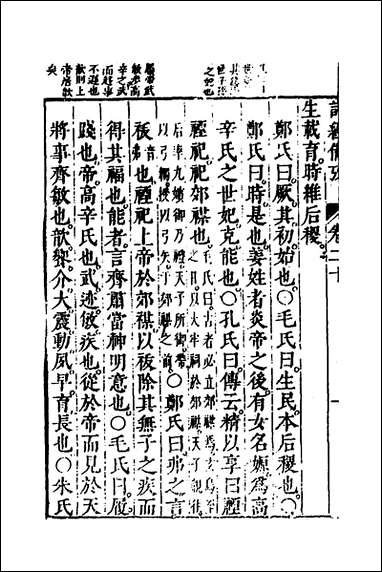 詩緝備攷 卷二十
生載育時維后稷
鄭氏曰厥其初始也○毛氏曰生民本后稷也○
鄭氏曰時是也姜姓者炎帝之後有女名嫄為高
辛氏之世妃克能也○孔氏曰傳云精以享曰禋
禋祀祀郊禖也毛氏曰古者必立郊禖焉玄鳥至
之日以大牢祠於郊禖天子親往
后率九嬪御乃禮天子所御帶
以弓韣授以弓矢于郊禖之前○鄭氏曰弗之言
祓音也禋祀上帝於郊禖以祓除其無子之疾而
得其福也能者言齊肅當神明意也○毛氏曰履
踐也帝高辛氏也武迹敏疾也從於帝而見於天
將事齊敏也歆饗介大震動夙早育長也○朱氏
履帝武
敏歆高
辛之武
而赴事
不遲也
歆則上
帝居歆
矣